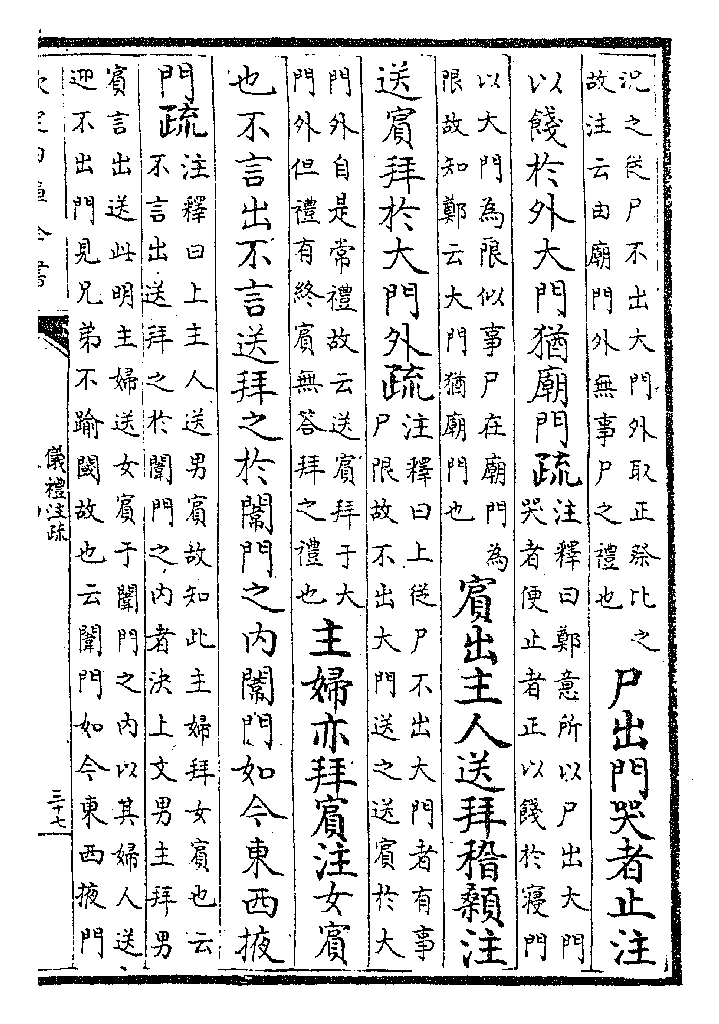 況之從尸不出大門外取正祭比之
故注云由廟門外無事尸之禮也
尸出門哭者止注
以餞於外大門猶廟門疏
注釋曰鄭意所以尸出大門
哭者便止者正以餞於寢門
以大門為限似事尸在廟門為
限故知鄭云大門猶廟門也
賓出主人送拜稽顙注
送賓拜於大門外疏
注釋曰上從尸不出大門者有事
尸限故不出大門送之送賓於大
門外自是常禮故云送賓拜于大
門外但禮有終賓無答拜之禮也
主婦亦拜賓注女賓
也不言出不言送拜之於闈門之內闈門如今東西掖
門疏
注釋曰上主人送男賓故知此主婦拜女賓也云
不言出送拜之於闈門之內者決上文男主拜男
賓言出送此明主婦送女賓于闈門之內以其婦人送
迎不出門見兄弟不踰閾故也云闈門如今東西掖門
儀禮注疏
三十七